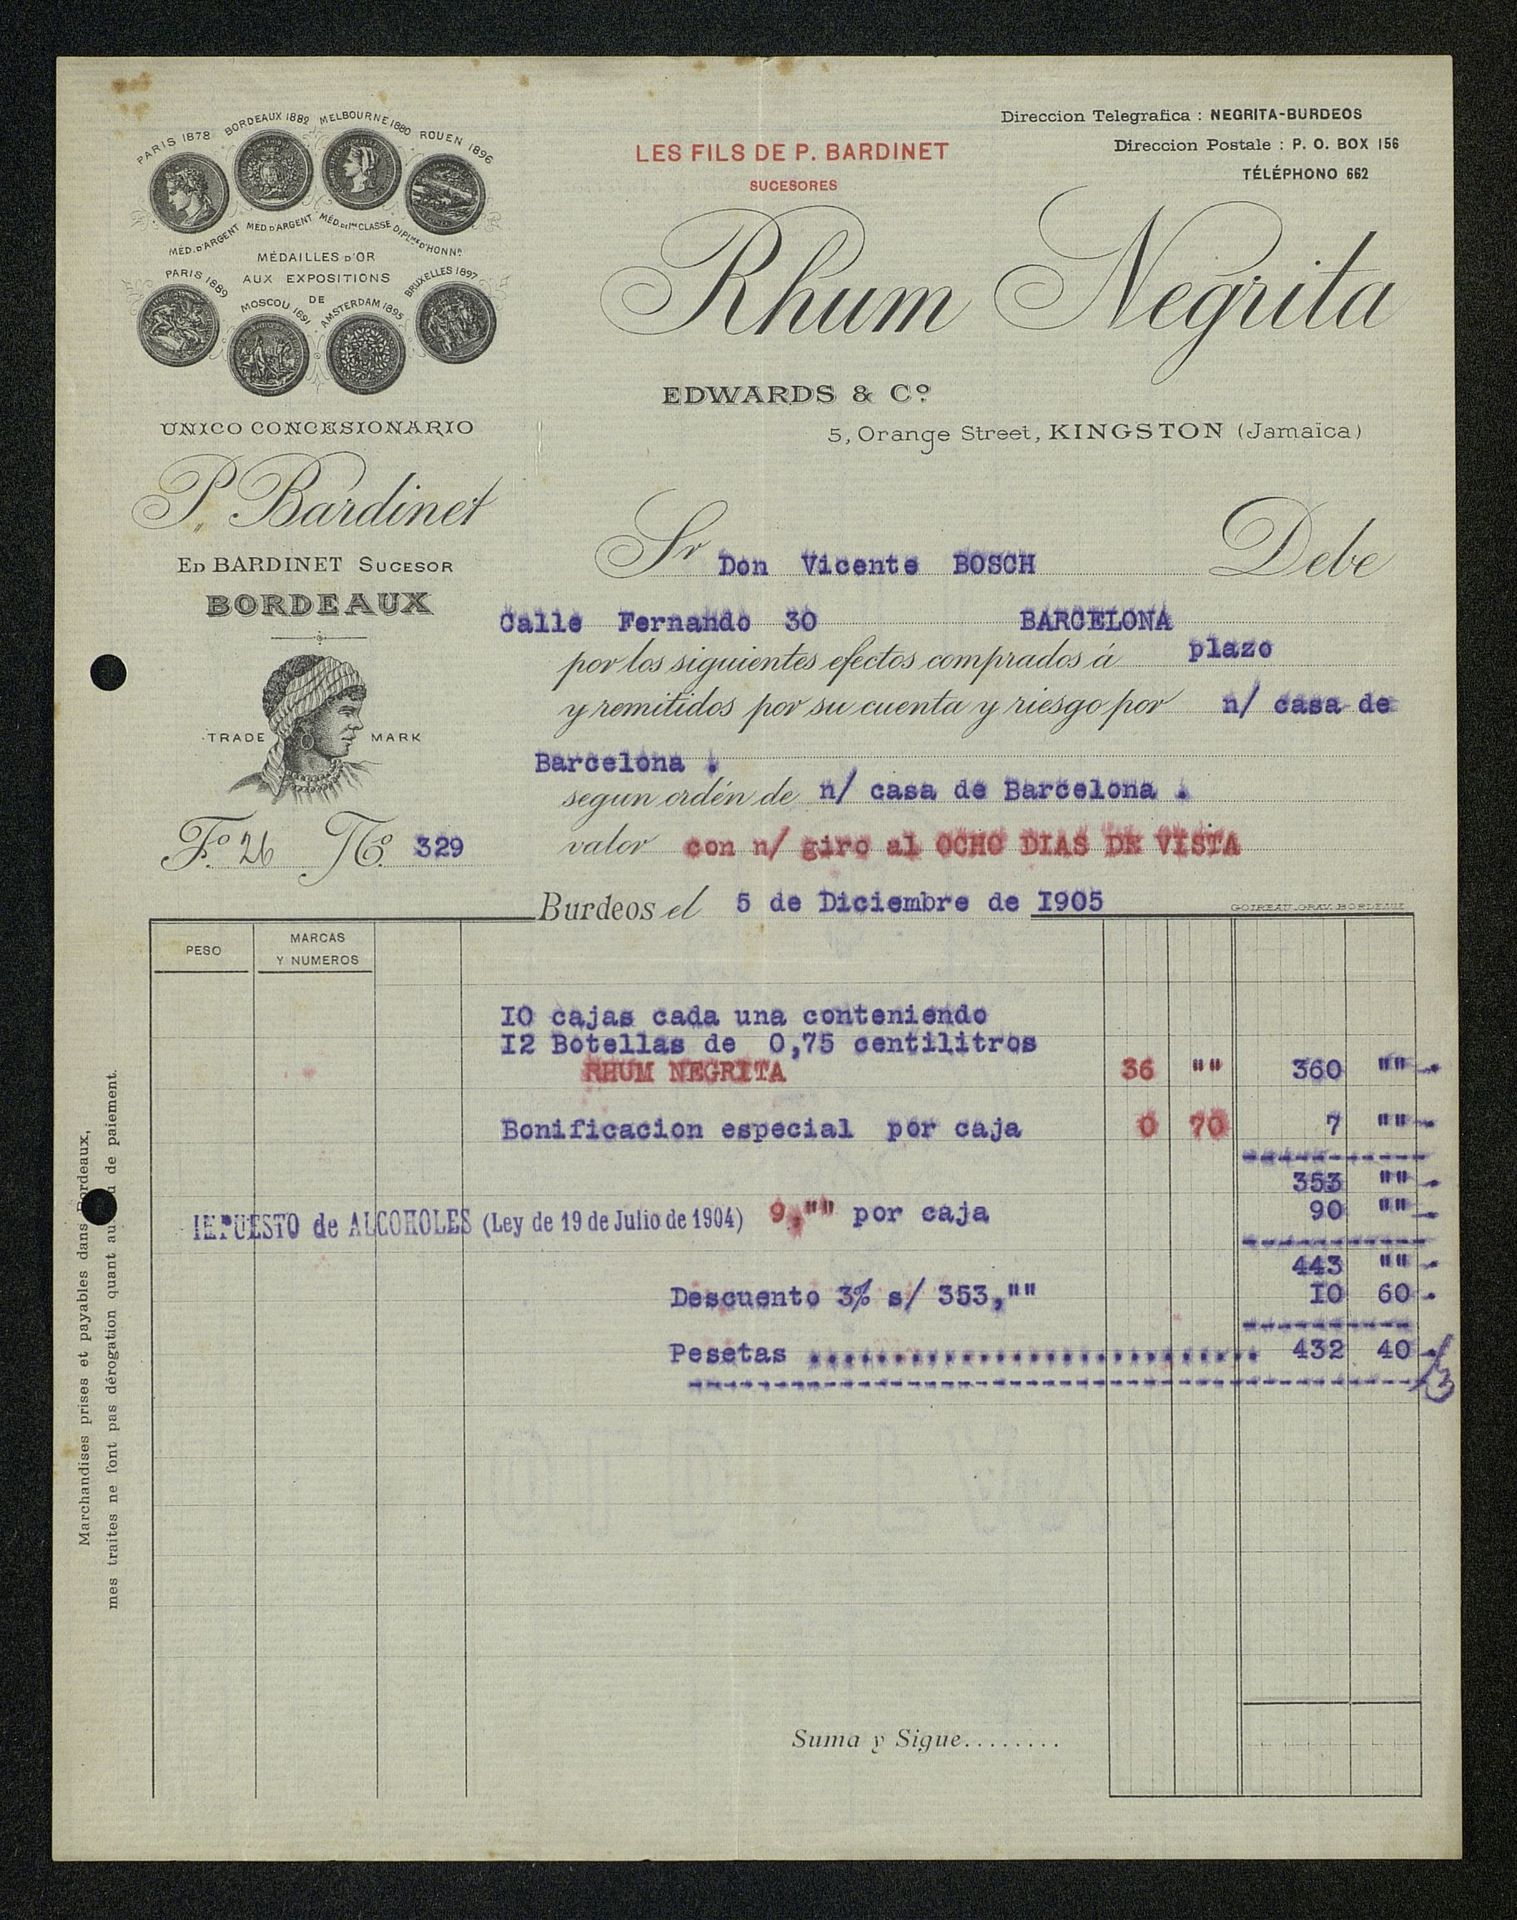 PARIS 1878 BORDEAUX 1882 MELBOURNE 1880 ROUEN 1896
MÉD. D'ARGENT MED. D'ARGENT MÉD. DE 1RE CLASSE DIPLME D'HONNR
MÉDAILLES D'OR
AUX EXPOSITIONS
DE
PARIS 1889 MOSCOU 1891 AMSTERDAM 1895 BRUXELLES 1897
UNICO CONCESIONARIO
P. Bardinet
ED BARDINET SUCESOR
BORDEAUX
TRADE MARK
Fº 26 Nº 329
Direccion Telegrafica : NEGRITA-BURDEOS
Direccion Postale : P. O. BOX 156
TÉLÉPHONO 662
LES FILS DE P. BARDINET
SUCESORES
Rhum Negrita
EDWARDS & Cº
5, Orange Street, KINGSTON (Jamaïca)
Sr Don Vicente BOSCH Debe
Calle Fernando 30 BARCELONA
por los siguientes efectos comprados á plazo
y remitidos por su cuenta y riesgo por n/ casa de
Barcelona .
segun ordén de n/ casa de Barcelona .
valor con n/ giro al OCHO DIAS DE VISTA
Burdeos el 5 de Diciembre de I905
GOIREAU. GRAV. BORDEAUX
PESO MARCAS Y NUMEROS
IO cajas cada una conteniendo
I2 Botellas de 0,75 centilitros
RHUM NEGRITA 36 "" 360 ""-.
Bonificacion especial por caja 0 70 7 ""-.
353 ""-.
IMPUESTO de ALCOHOLES (Ley de 19 de Julio de 1904) 9,"" por caja 90 ""-.
443 ""-.
Descuento 3% s/ 353,"" IO 60-.
Pesetas .......................... 432 40-.
Suma y Sigue........
Marchandises prises et payables dans Bordeaux,
mes traites ne font pas dérogation quant au lieu de paiement.